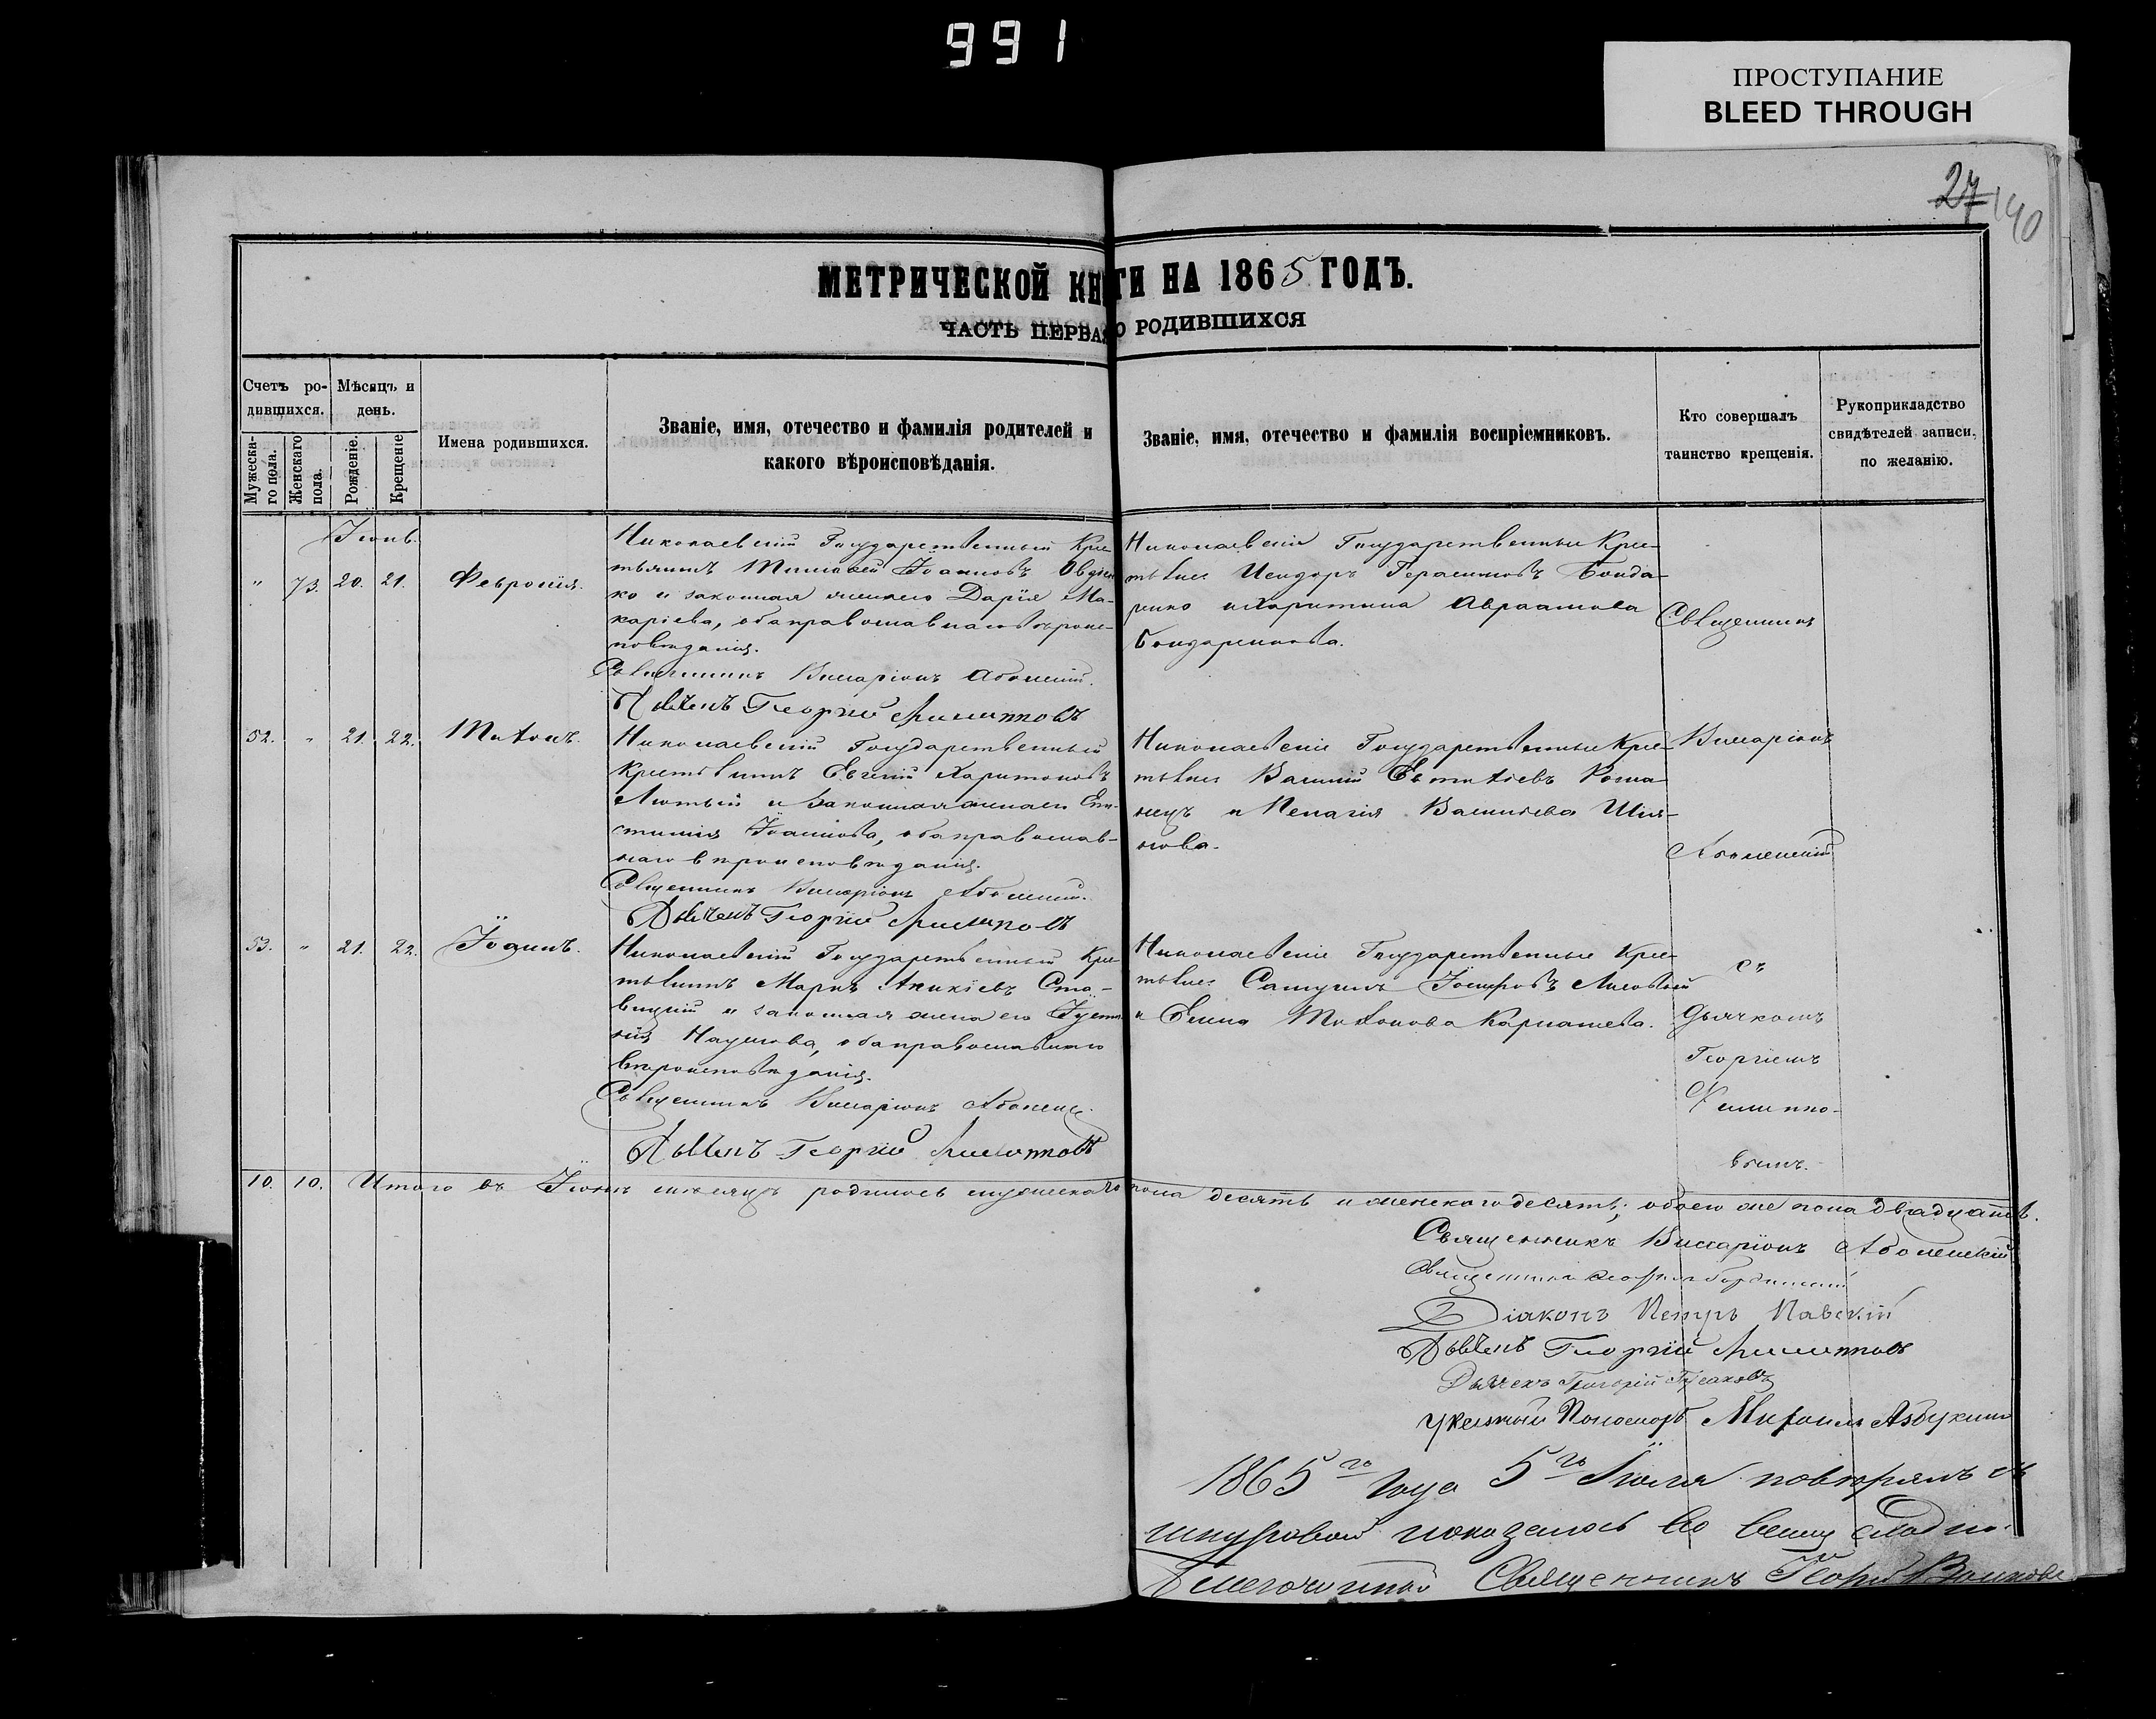 991
ПРОСТУПАНИЕ
BLEED THROUGH
27 140
МЕТРИЧЕСКОЙ КНИГИ НА 1865 ГОДЪ.
ЧАСТЬ ПЕРВАЯ О РОДИВШИХСЯ
Счетъ ро-
дившихся.
Мужеска-
го пола.
Женскаго
пола.
Мѣсяцъ и
день.
Рожденіе.
Крещеніе
Имена родившихся.
Званіе, имя, отечество и фамилія родителей и
какого вѣроисповѣданія.
Званіе, имя, отечество и фамилія воспріемниковъ.
Кто совершалъ
таинство крещенія.
Рукоприкладство
свидѣтелей записи,
по желанію.
Іюнь
" 73. 20. 21. Февронія.
Николаевскій Государственный Кре-
стьянинъ Тимофей Іоанновъ
ко и законная жена его Дарія Ма-
каріева, оба православнаго вѣроис-
повѣданія.
Священникъ Виссаріонъ Аболенскій.
Дьячекъ Георгій Филипповъ
Николаевскіе Государственные Кре-
стьяне Исидоръ Герасимовъ Бонда-
ренко и Харитина Авраамова
Бондаренкова.
52. " 21. 22. Тихонъ.
Николаевскій Государственный
Крестьянинъ Евгеній Харитоновъ
Лютый и законная жена его Епи-
стимія Іоаннова, оба православ-
наго вѣроисповѣданія.
Священникъ Виссаріонъ Аболенскій.
Дьячекъ Георгій Филиповъ
Николаевскіе Государственные Кре-
стьяне Василій Евтихіевъ
и Пелагія Васильева
53. " 21. 22. Іоаннъ.
Николаевскій Государственный Кре-
стьянинъ Маркъ Аникіевъ Ста-
вицкій и законная жена его Іусти-
нія Наумова, оба православнаго
вѣроисповѣданія.
Священникъ Виссаріонъ Аболенск.
Дьячекъ Георгій Филипповъ
Николаевскіе Государственные Кре-
стьяне Самуилъ Іосифовъ Лисовый
и Елена Тихонова Карпашева.
Священникъ
Виссаріонъ
Аболенскій
съ
дьячкомъ
Георгіемъ
Филиппо-
вымъ.
10. 10. Итого въ Іюнѣ мѣсяцѣ родилось мужескаго пола десять и женскаго десять; обоего же пола двадцать.
Священникъ Виссаріонъ Аболенскій
Священникъ
Діаконъ Петръ Павскій
Дьячекъ Георгій Филипповъ
Дьячекъ Григорій Гусаковъ
Пономарь Михаилъ Азбукинъ
1865го года 5го Іюля повѣрялъ съ
шнуровой показалось во всемъ сходно.
Благочинный Священникъ Георгій Волковъ